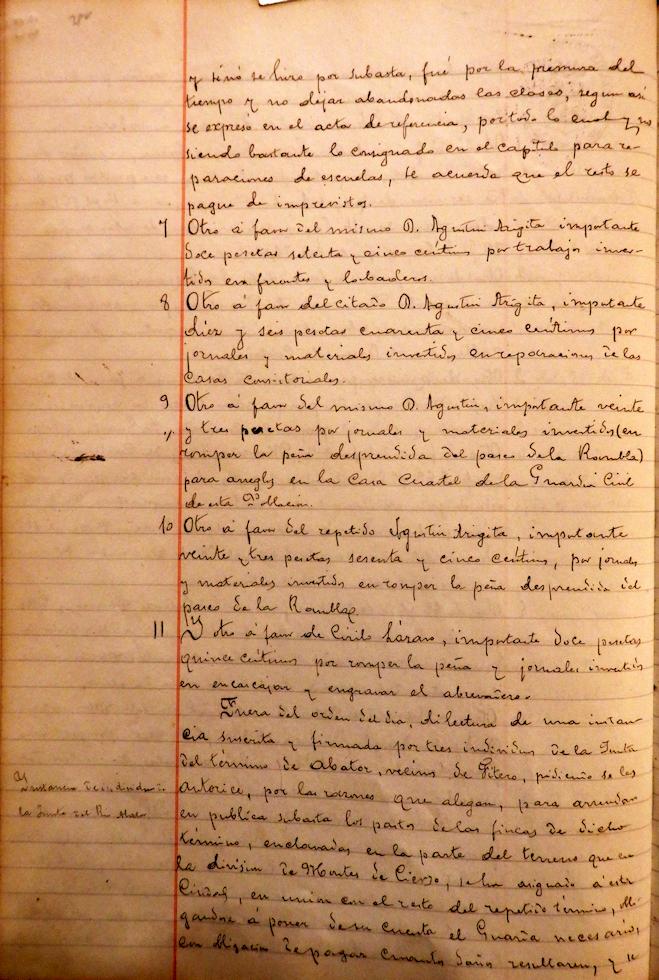 y sinó se hizo por subasta, fué por la premura del
tiempo y no dejar abandonadas las clases, segun así
se expresó en el acta de referencia, por todo lo cual y no
siendo bastante lo consignado en el capítulo para re-
paraciones de escuelas, se acuerda que el resto se
pague de imprevistos.
7 Otro á favor del mismo D. Agustin Arigita importante
doce pesetas setenta y cinco céntimos por trabajos inver-
tidos en fuentes y labaderos.
8 Otro á favor del citado D. Agustin Arigita, importante
diez y seis pesetas cuarenta y cinco centimos por
jornales y materiales invertidos en reparaciones de las
Casas consistoriales.
9 Otro á favor del mismo D. Agustin, importante veinte
y tres pesetas por jornales y materiales invertidos (en
romper la peña desprendida del paseo de la Rambla)
para arreglos en la Casa Cuartel de la Guardia Civil
de esta
10 Otro á favor del repetido Agustin Arigita, importante
veinte y tres pesetas sesenta y cinco céntimos, por jornales
y materiales invertidos en romper la peña desprendida del
paseo de la Rambla.
11 Y otro á favor de Cirilo Lázaro, importante doce pesetas
quince centimos por romper la peña y jornales invertidos
en encascajar y engravar el abrevadero.
Fuera del orden del dia, dí lectura de una instan-
cia suscrita y firmada por tres individuos de la Junta
del término de Abatores, vecinos de Fitero, pidiendo se les
autorice, por las razones que alegan, para arrendar
en publica subasta los pastos de las fincas de dicho
término, enclavadas en la parte del terreno que en
la division de Montes de Cierzo, se ha asignado á esta
Ciudad, en union con el resto del repetido término, obli-
gandose á poner de su cuenta el Guarda necesario,
con obligacion de pagar cuantos daños resultaren, y
Instancia de individuos de
la Junta del